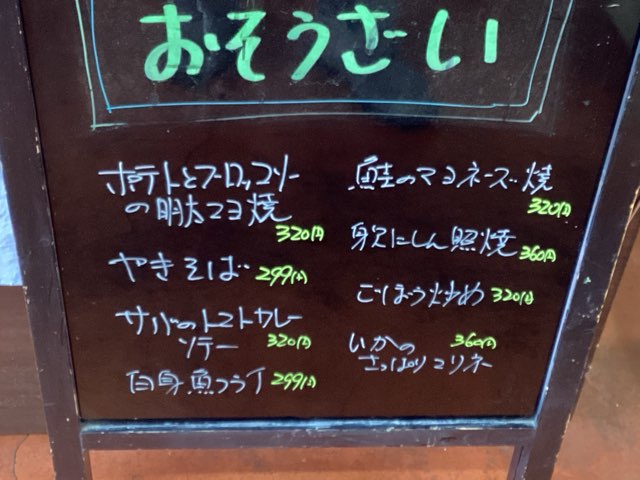 おそうざい
ポテトとブロッコリー
の明太マヨ焼
320円
やきそば 299円
サバのトマトカレー
ソテー 320円
白身魚フライ 299円
鮭のマヨネーズ焼
320円
身欠にしん照焼 360円
ごぼう炒め 320円
いかの 360円
さっぱりマリネ